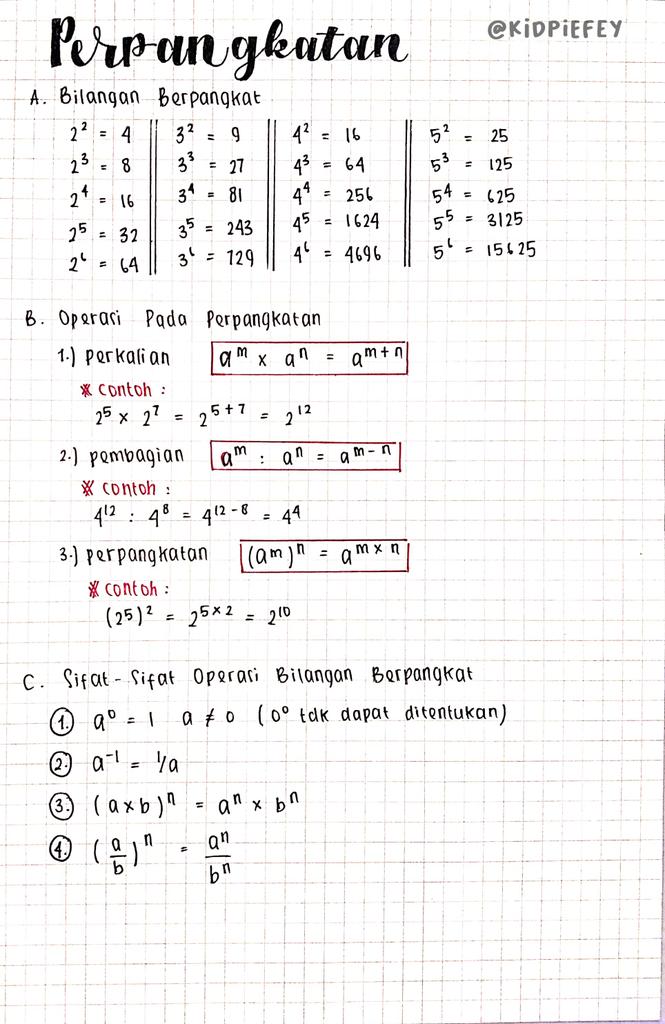 Perpangkatan
@KiDPiEFEY
A. Bilangan Berpangkat
2² = 4 || 3² = 9 || 4² = 16 || 5² = 25
2³ = 8 || 3³ = 27 || 4³ = 64 || 5³ = 125
2⁴ = 16 || 3⁴ = 81 || 4⁴ = 256 || 5⁴ = 625
2⁵ = 32 || 3⁵ = 243 || 4⁵ = 1624 || 5⁵ = 3125
2⁶ = 64 || 3⁶ = 129 || 4⁶ = 4696 || 5⁶ = 15625
B. Operasi Pada Perpangkatan
1.) perkalian aᵐ x aⁿ = aᵐ⁺ⁿ
* contoh :
2⁵ x 2⁷ = 2⁵⁺⁷ = 2¹²
2.) pembagian aᵐ : aⁿ = aᵐ⁻ⁿ
* contoh :
4¹² : 4⁸ = 4¹²⁻⁸ = 4⁴
3.) perpangkatan (am)ⁿ = aᵐ ˣ ⁿ
* contoh :
(25)² = 2⁵ ˣ ² = 2¹⁰
C. Sifat - Sifat Operasi Bilangan Berpangkat
1. a⁰ = 1 a ≠ 0 (0⁰ tdk dapat ditentukan)
2. a⁻¹ = 1/a
3. (a x b)ⁿ = aⁿ x bⁿ
4. (a/b)ⁿ = aⁿ/bⁿ